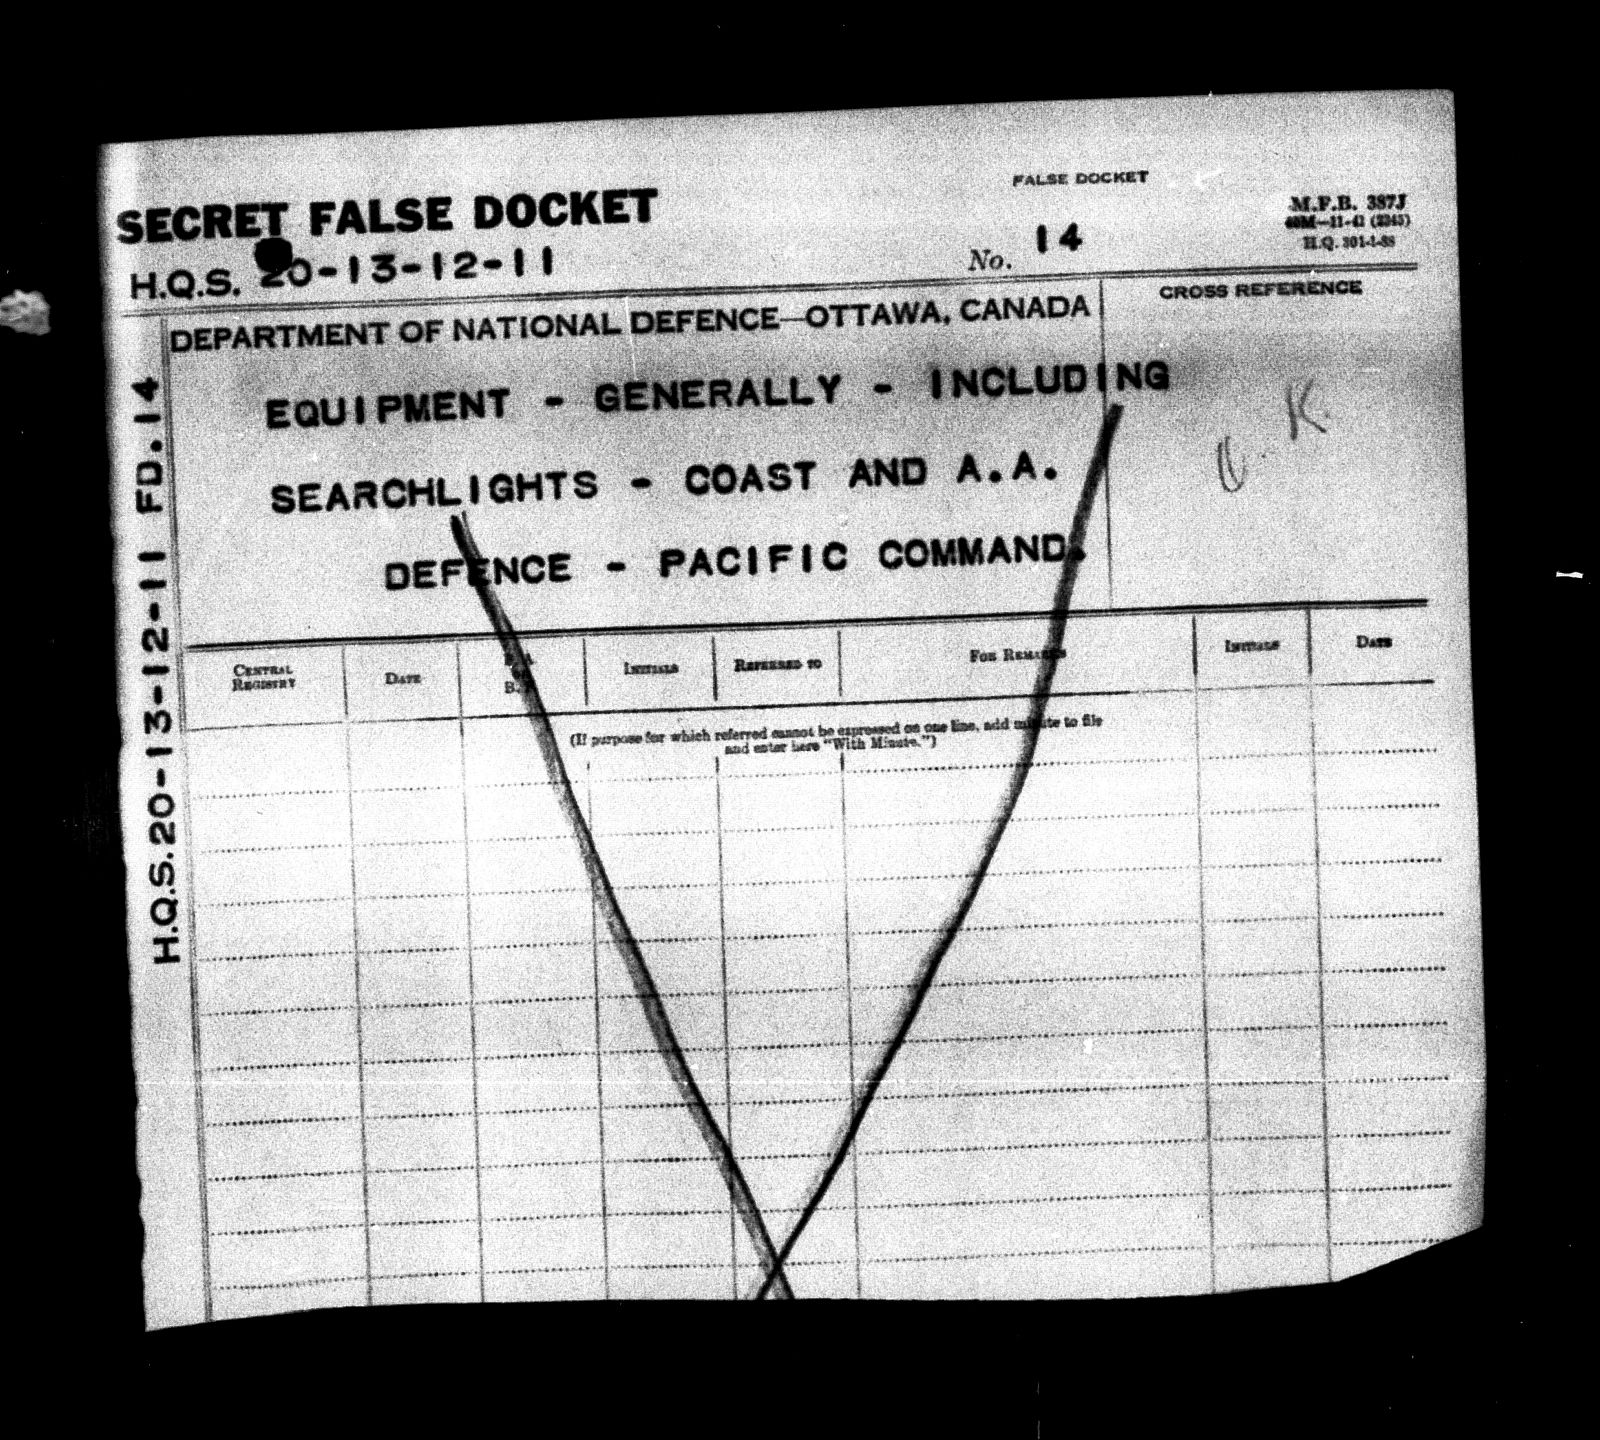 FALSE DOCKET
SECRET FALSE DOCKET
M.F.B. 387J
40M—11-41 (2345)
H.Q. 301-1-88
H.Q.S. 20-13-12-11
No. 14
DEPARTMENT OF NATIONAL DEFENCE—OTTAWA, CANADA
CROSS REFERENCE
EQUIPMENT - GENERALLY - INCLUDING
SEARCHLIGHTS - COAST AND A.A.
DEFENCE - PACIFIC COMMAND.
K.
H.Q.S.20-13-12-11 FD.14
CENTRAL REGISTRY
DATE
INITIALS
REFERRED TO
FOR REMARKS
INITIALS
DATE
(If purpose for which referred cannot be expressed on one line, add minute to file
and enter here "With Minute.")